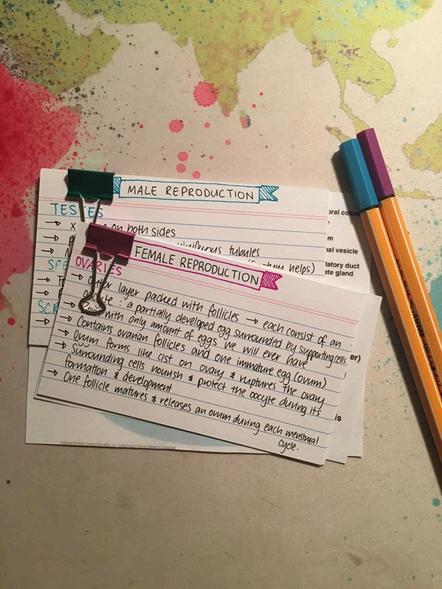 MALE REPRODUCTION
TESTES
on both sides
tubules
helps)
FEMALE REPRODUCTION
OVARIES
layer packed with follicles → each consist of an
: a partially developed egg surrounded by supporting cells
with only amount of eggs we will ever have
→ Contains ovarian follicles and one immature egg (ovum)
→ Ovum forms like cist on ovary & ruptures the ovary
→ Surrounding cells nourish & protect the oocyte during its
formation & development
→ One follicle matures & releases an ovum during each menstrual
cycle.
al vesicle
latory duct
te gland
er)
is